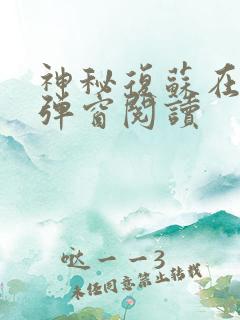 神秘復蘇在
彈窗閱讀
哒一一3
未经同意禁止转载